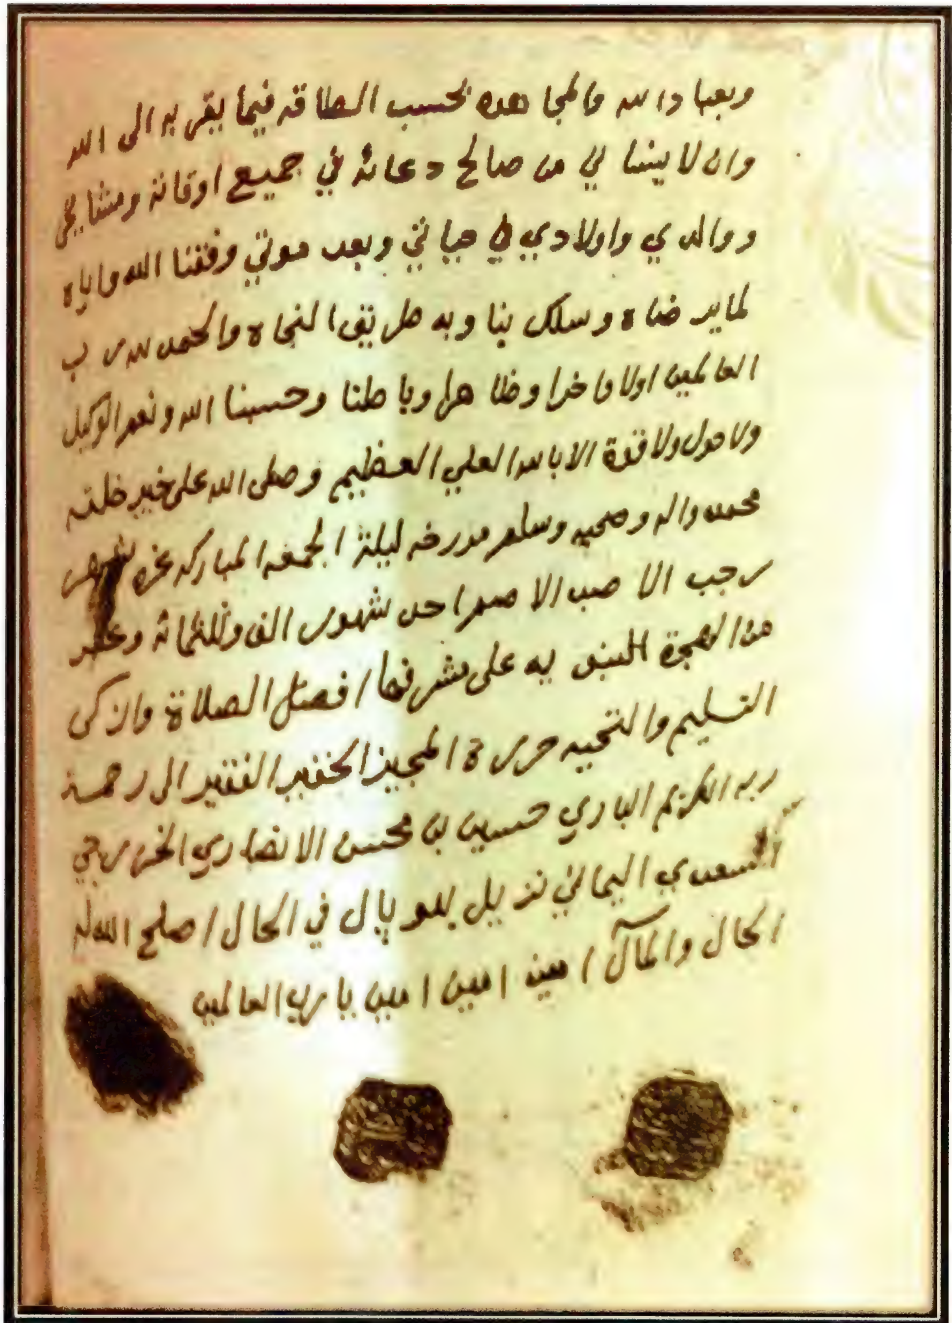 وبعباد الله والمجاهده بحسب الطاقه فيما يقربه الى الله
وان لا ينساني من صالح دعائه في جميع اوقاته ومشايخي
ووالدي واولادي في حياتي وبعد موتي وفقنا الله واياه
لما يرضاه وسلك بنا وبه طريق النجاه والحمد لله رب
العالمين اولا واخرا وظاهرا وباطنا وحسبنا الله ونعم الوكيل
ولا حول ولا قوة الا بالله العلي العظيم وصلى الله على خير خلقه
محمد واله وصحبه وسلم مورخه ليلة الجمعه المباركه غره شهر
رجب الاصب الاصم احد شهور الف وثلثمائة
من الهجرة النبويه على مشرفها افضل الصلاة وازكى
التسليم والتحيه حرره المجيز الحقير الفقير الى رحمة
ربه الكريم الباري حسين بن محسن الانصاري الخزرجي
السعدي اليماني نزيل بهوبال في الحال اصلح الله له
الحال والمآل امين امين امين يا رب العالمين